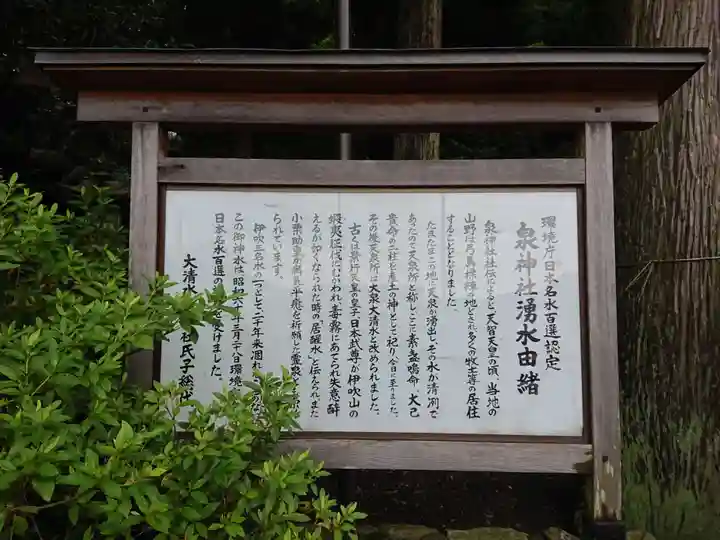 環境庁日本名水百選認定
泉神社湧水由緒
泉神社社伝によると、天智天皇の頃、当地の
山野は弓馬操練の地とされ多くの牧士等の居住
することとなりました。
たまたまこの地に天泉が湧出し、その水が清冽で
あったので天泉所と称し、ここに素盞嗚命、大己
貴命の二柱を産土の神として祀り今日に至りました。
その後天泉所は大泉大清水と改められました。
古くは景行天皇の皇子日本武尊が伊吹山の
蝦夷征伐にむかわれ、毒霧にあてられ失意酔
えるが如くなられた時の居醒水とも伝えられまた
小栗助重が病気平癒を祈願した霊泉とも
られています。
伊吹三名水の一つとして二千年来涸れ
この御神水は昭和六十年三月二十八日環境
日本名水百選の を受けました。
大清水 社氏子総代